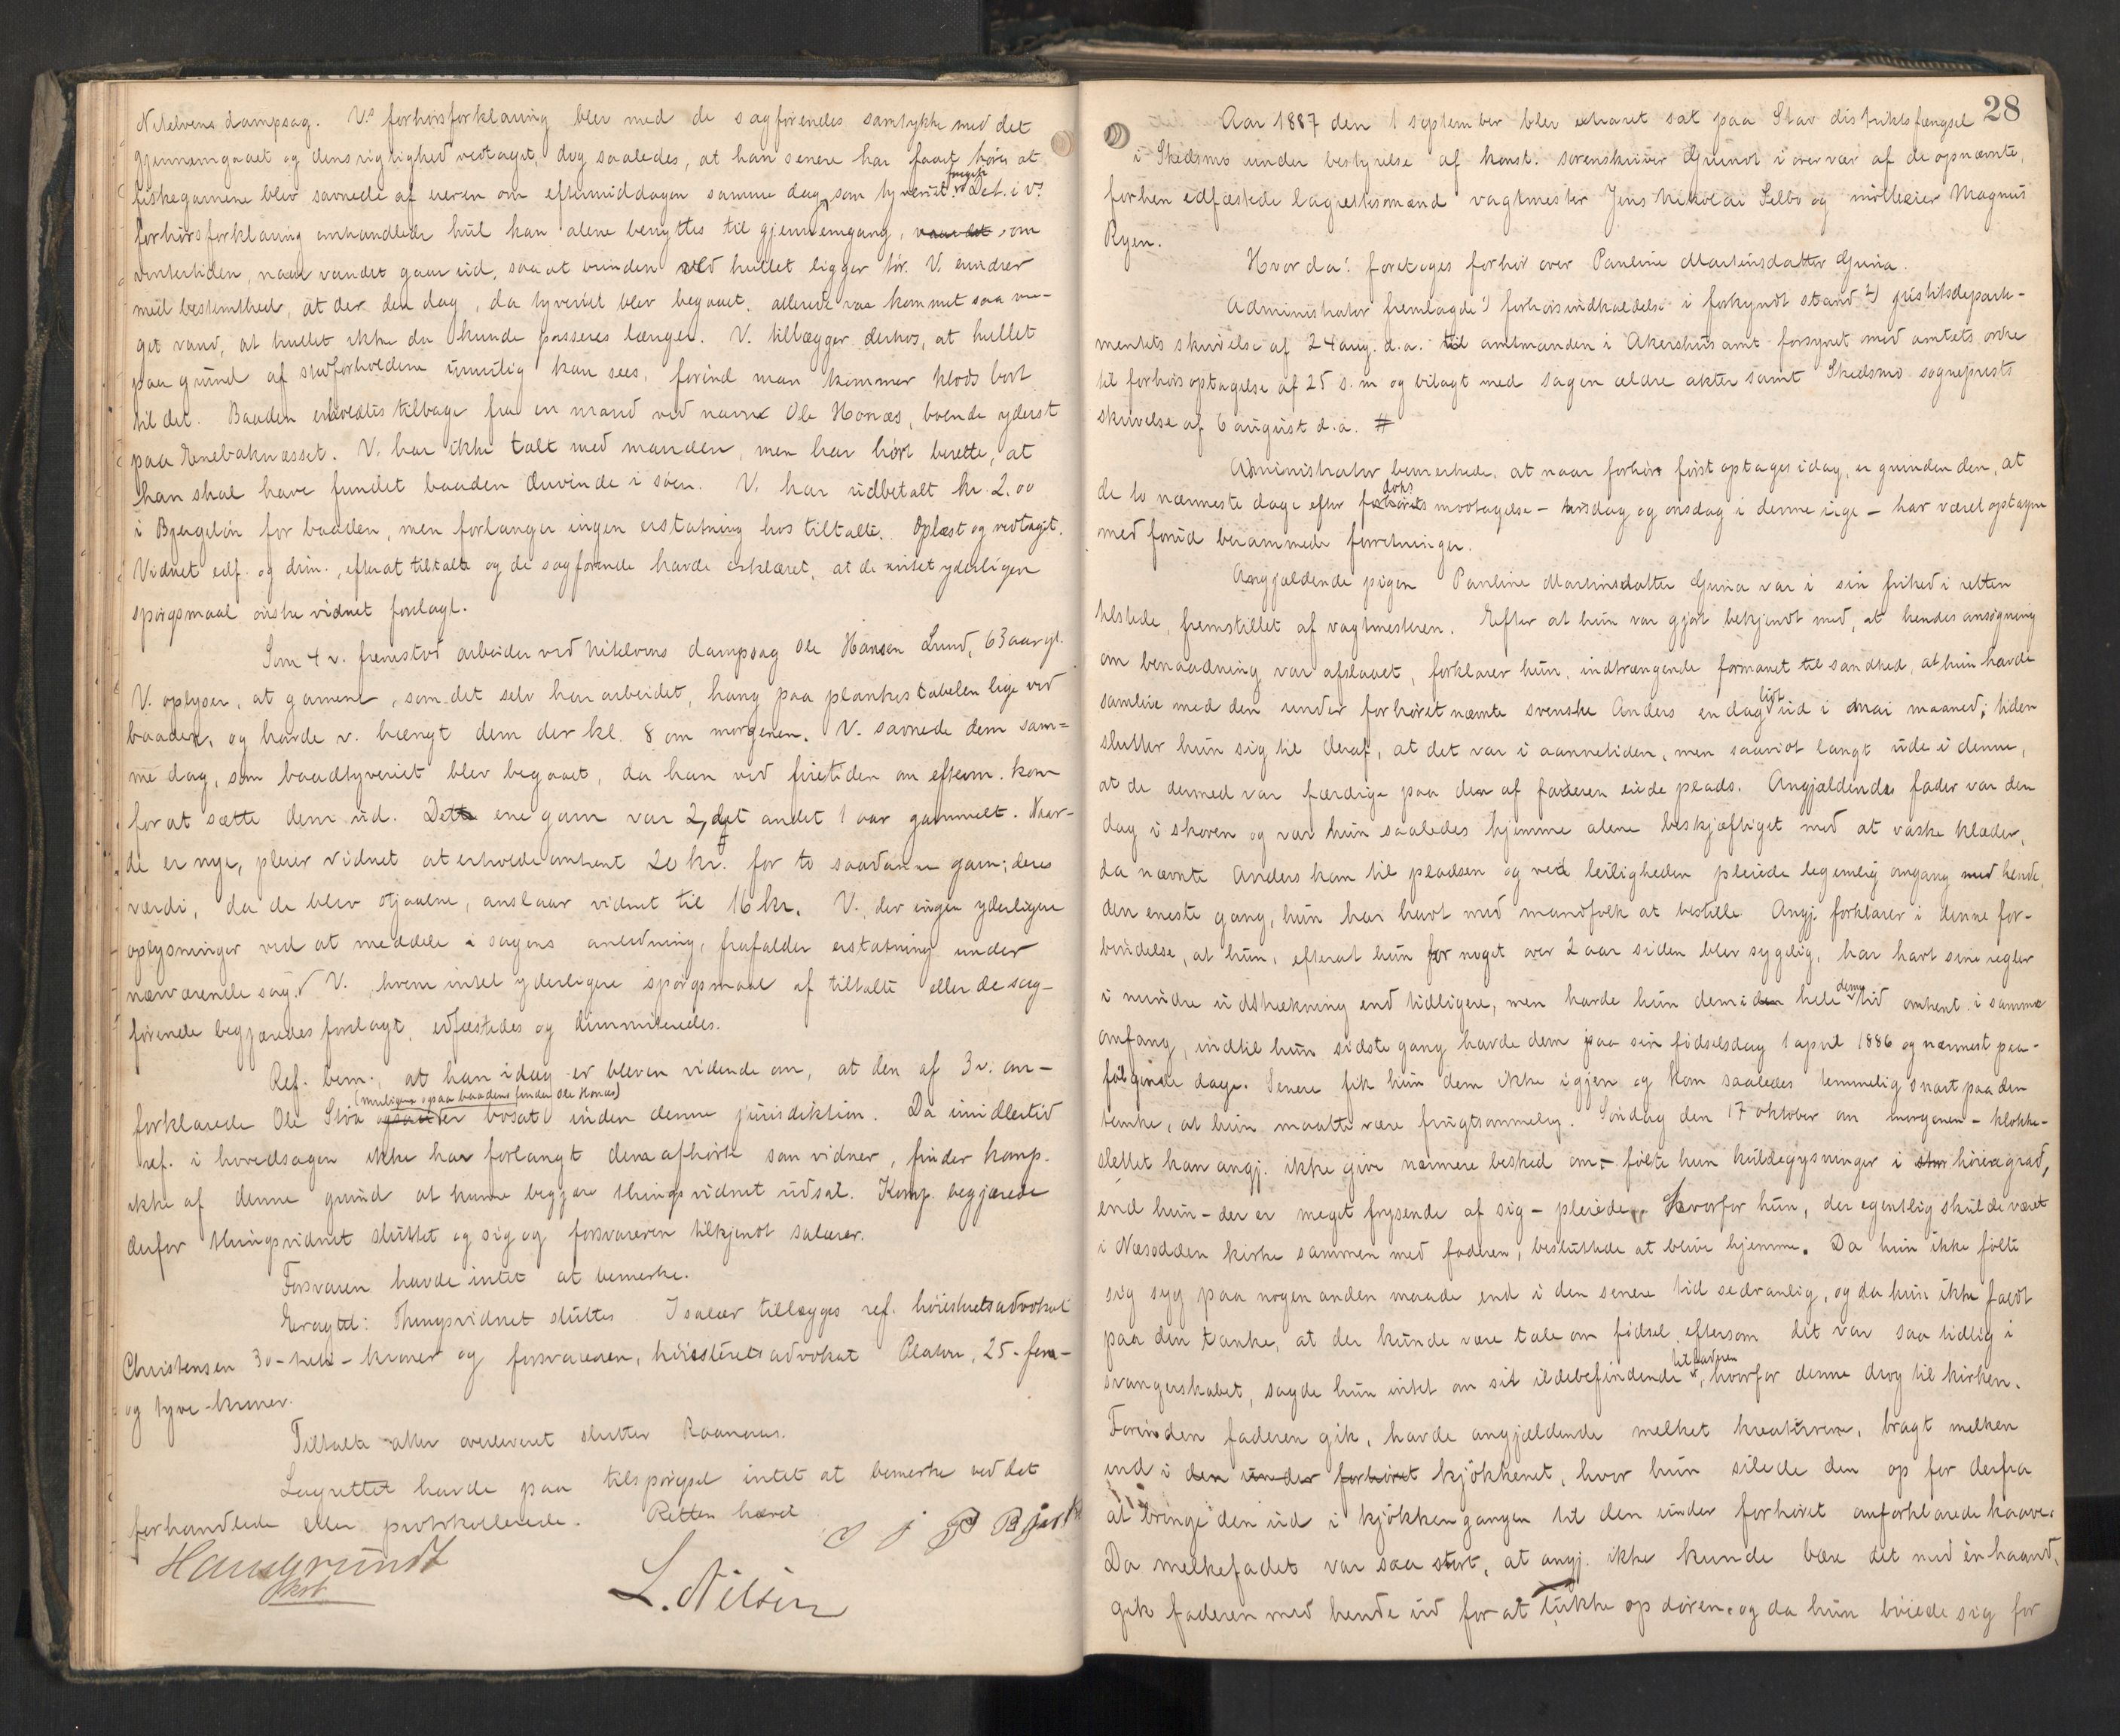 Nitelvens dampsag. V.s forhørsforklaring blev med de sagførendes samtykke med det
gjennemgaaet og dens rigtighed vedtaget, dog saaledes, at han senere har faaet høre at
fiskegarnene blev savnede af eieren om eftermiddagen samme dag, som tyveriet foregik. Det i v.s
forhørsforklaring omhandlede hul kan alene benyttes til gjennemgang, om
vintertiden, naar vandet gaar ud, saa at bunden ved hullet ligger tør. V. erindrer
med bestemthed, at der den dag, da tyveriet blev begaaet, allerede var kommet saa me-
get vand, at hullet ikke da kunde passeres længer. V. tillægger derhos, at hullet
paa grund af stedforholdene umulig kan sees, forind man kommer klods bort
til det. Baaden erholdtes tilbage fra en mand ved navn Ole Honæs, boende yderst
paa Enebaknæsset. V. har ikke talt med manden, men har hørt berette, at
han skal have fundet baaden drivende i søen. V. har udbetalt kr. 2.00
i Bjergeløn for baaden, men forlanger ingen erstatning hos tiltalte. Oplæst og vedtaget.
Vidnet edf. og dim., efterat tiltalte og de sagførende havde erklæret, at de intet yderligere
spørgsmaal ønske vidnet forelagt.
Som 4 v. fremstod arbeider ved Nitelvens dampsag Ole Hansen Lund, 63 aar gl.
V. oplyser, at garnene, som det selv har arbeidet, hang paa plankestabelen lige ved
baaden, og havde v. hængt dem der kl. 8 om morgenen. V. savnede dem sam-
me dag, som baadtyveriet blev begaaet, da han ved firetiden om efterm. kom
for at sætte dem ud. Det ene garn var 2, det andet 1 aar gammelt. Naar
de er nye, pleier vidnet at erholde omtrent 20 kr. for to saadanne garn; deres
værdi, da de blev stjaalne, anslaar vidnet til 16 kr. V., der ingen yderligere
oplysninger ved at meddele i sagens anledning, frafalder erstatning under
nærværende sag. V., hvem intet yderligere spørgsmaal af tiltalte eller de sag-
førende begjæredes forelagt, edfæstedes og dimitteredes.
Ref. bem., at han idag er bleven vidende om, at den af 3 v. om-
(muligens ogsaa baadens finder Ole Honæs)
forklarede Ole Sloa er bosat inden denne jurisdiktion. Da imidlertid
ref. i hovedsagen ikke har forlangt dem afhørte som vidner, finder komp.
ikke af denne grund at kunne begjære thingsvidnet udsat. Komp. begjærede
derfor thingsvidnet sluttet og sig og forsvareren tilkjendt salærer.
Forsvaren havde intet at bemerke.
Eragtet: Thingsvidnet sluttes. I salær tillægges ref. høiesteretsadvokat
Christensen 30-treti-kroner og forsvareren, høiesteretsadvokat Platou, 25-fem-
og tyve-kroner.
Tiltalte atter overleveret slutter Raanaas.
Lagrettet havde paa tilspørgsel intet at bemerke ved det
forhandlede eller protokollerede. Retten hævd
Hans Grundt
kst.
L. Nilsen
28
Aar 1887 den 1 september blev extraret sat paa Stav distriktsfængsel
i Skedsmo under bestyrelse af konst. sorenskriver Grundt i overvær af de opnævnte,
forhen edfæstede lagrettesmænd vagtmester Jens Nikolai Selbo og mølleeier Magnus
Ryen.
Hvorda: foretoges forhør over Pauline Martinsdatter Guria.
Administrator fremlagde 1) forhørsindkaldelse i forkyndt stand 2) justitsdeparte-
mentets skrivelse af 24 aug. d.a. til amtmanden i Akershus amt forsynet med amtets ordre
til forhørsoptagelse af 25 s.m. og bilagt med sagen ældre akter samt Skedsmo sogneprests
skrivelse af 6 august d.a. #
Administrator bemerkede, at naar forhør først optages idag, er grunden den, at
de to nærmeste dage efter doks. modtagelse - tirsdag og onsdag i denne uge - har været optagne
med forud berammede forretninger.
Angjældende pigen Pauline Martinsdatter Guria var i sin frihed i retten
tilstede, fremstillet af vagtmesteren. Efter at hun var gjort bekjendt med, at hendes ansøgning
om benaadning var afslaaet, forklarer hun, indtrængende formanet til sandhed, at hun havde
samleie med den under forhøret nævnte svenske Anders en dag lidt ud i mai maaned; tiden
slutter hun sig til deraf, at det var i aannetiden, men saavidt langt ude i denne,
at de dermed var færdige paa den af faderen eiede plads. Angjældendes fader var den
dag i skoven og var hun saaledes hjemme alene beskjæftiget med at vaske klæder,
da nævnte Anders kom til pladsen og ved leiligheden pleiede legemlig omgang med hende,
den eneste gang, hun har havt med mandfolk at bestille. Angj. forklarer i denne for-
bindelse, at hun, efterat hun for noget over 2 aar siden blev sygelig, har havt sine regler
i mindre udstrækning end tidligere, men havde hun dem i hele denne tid omtrent i samme
omfang, indtil hun sidste gang havde dem paa sin fødselsdag 1 april 1886 og nærmest paa-
følgende dage. Senere fik hun dem ikke igjen og kom saaledes temmelig snart paa den
tanke, at hun maatte være frugtsommelig. Søndag den 17 oktober om morgenen - klokke-
slettet kan angj. ikke give nærmere besked om - følte hun kuldegysninger i høiere grad,
end hun - der er meget frysende af sig - pleiede, hvorfor hun, der egentlig skulde været
i Næsodden kirke sammen med faderen, besluttede at blive hjemme. Da hun ikke følte
sig syg paa nogen anden maade end i den senere tid sedvanlig, og da hun ikke faldt
paa den tanke, at der kunde være tale om fødsel, eftersom det var saa tidlig i
svangerskabet, sagde hun intet om sit ildebefindende til faderen, hvorfor denne drog til kirken.
Forinden faderen gik, havde angjældende melket kreaturene, bragt melken
ind i den under forhøret kjøkkenet, hvor hun silede den op for derfra
at bringe den ud i kjøkkengangen til den under forhøret omforklarede kaave.
Da melkefadet var saa stort, at angj. ikke kunde bære det med èn haand,
gik faderen med hende ud for at lukke op døren, og da hun bøiede sig for